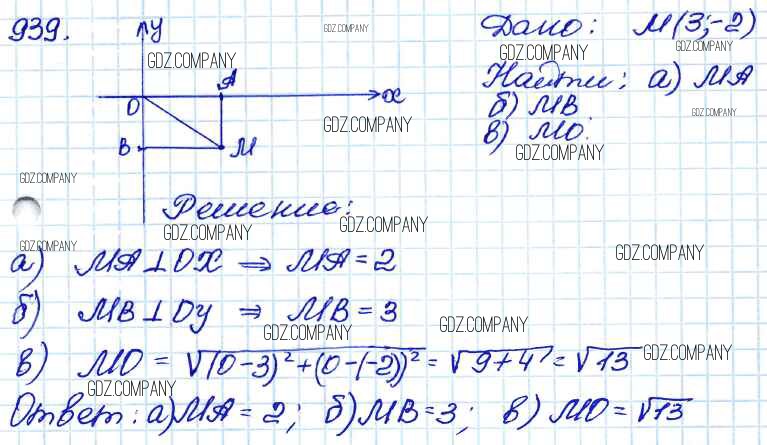 939.
y
GDZ.COMPANY
GDZ.COMPANY
Дано: M(3;-2)
GDZ.COMPANY
GDZ.COMPANY
A
Найти: а) MA
O
x
б) MB
GDZ.COMPANY
GDZ.COMPANY
в) MO.
B
M
GDZ.COMPANY
GDZ.COMPANY
Решение:
GDZ.COMPANY
GDZ.COMPANY
GDZ.COMPANY
GDZ.COMPANY
а) MA⊥OX ⇒ MA = 2
б) MB⊥Oy ⇒ MB = 3
GDZ.COMPANY
GDZ.COMPANY
в) MO = √((0-3)²+(0-(-2))²) = √(9+4) = √13
GDZ.COMPANY
GDZ.COMPANY
Ответ: а) MA = 2; б) MB = 3; в) MO = √13